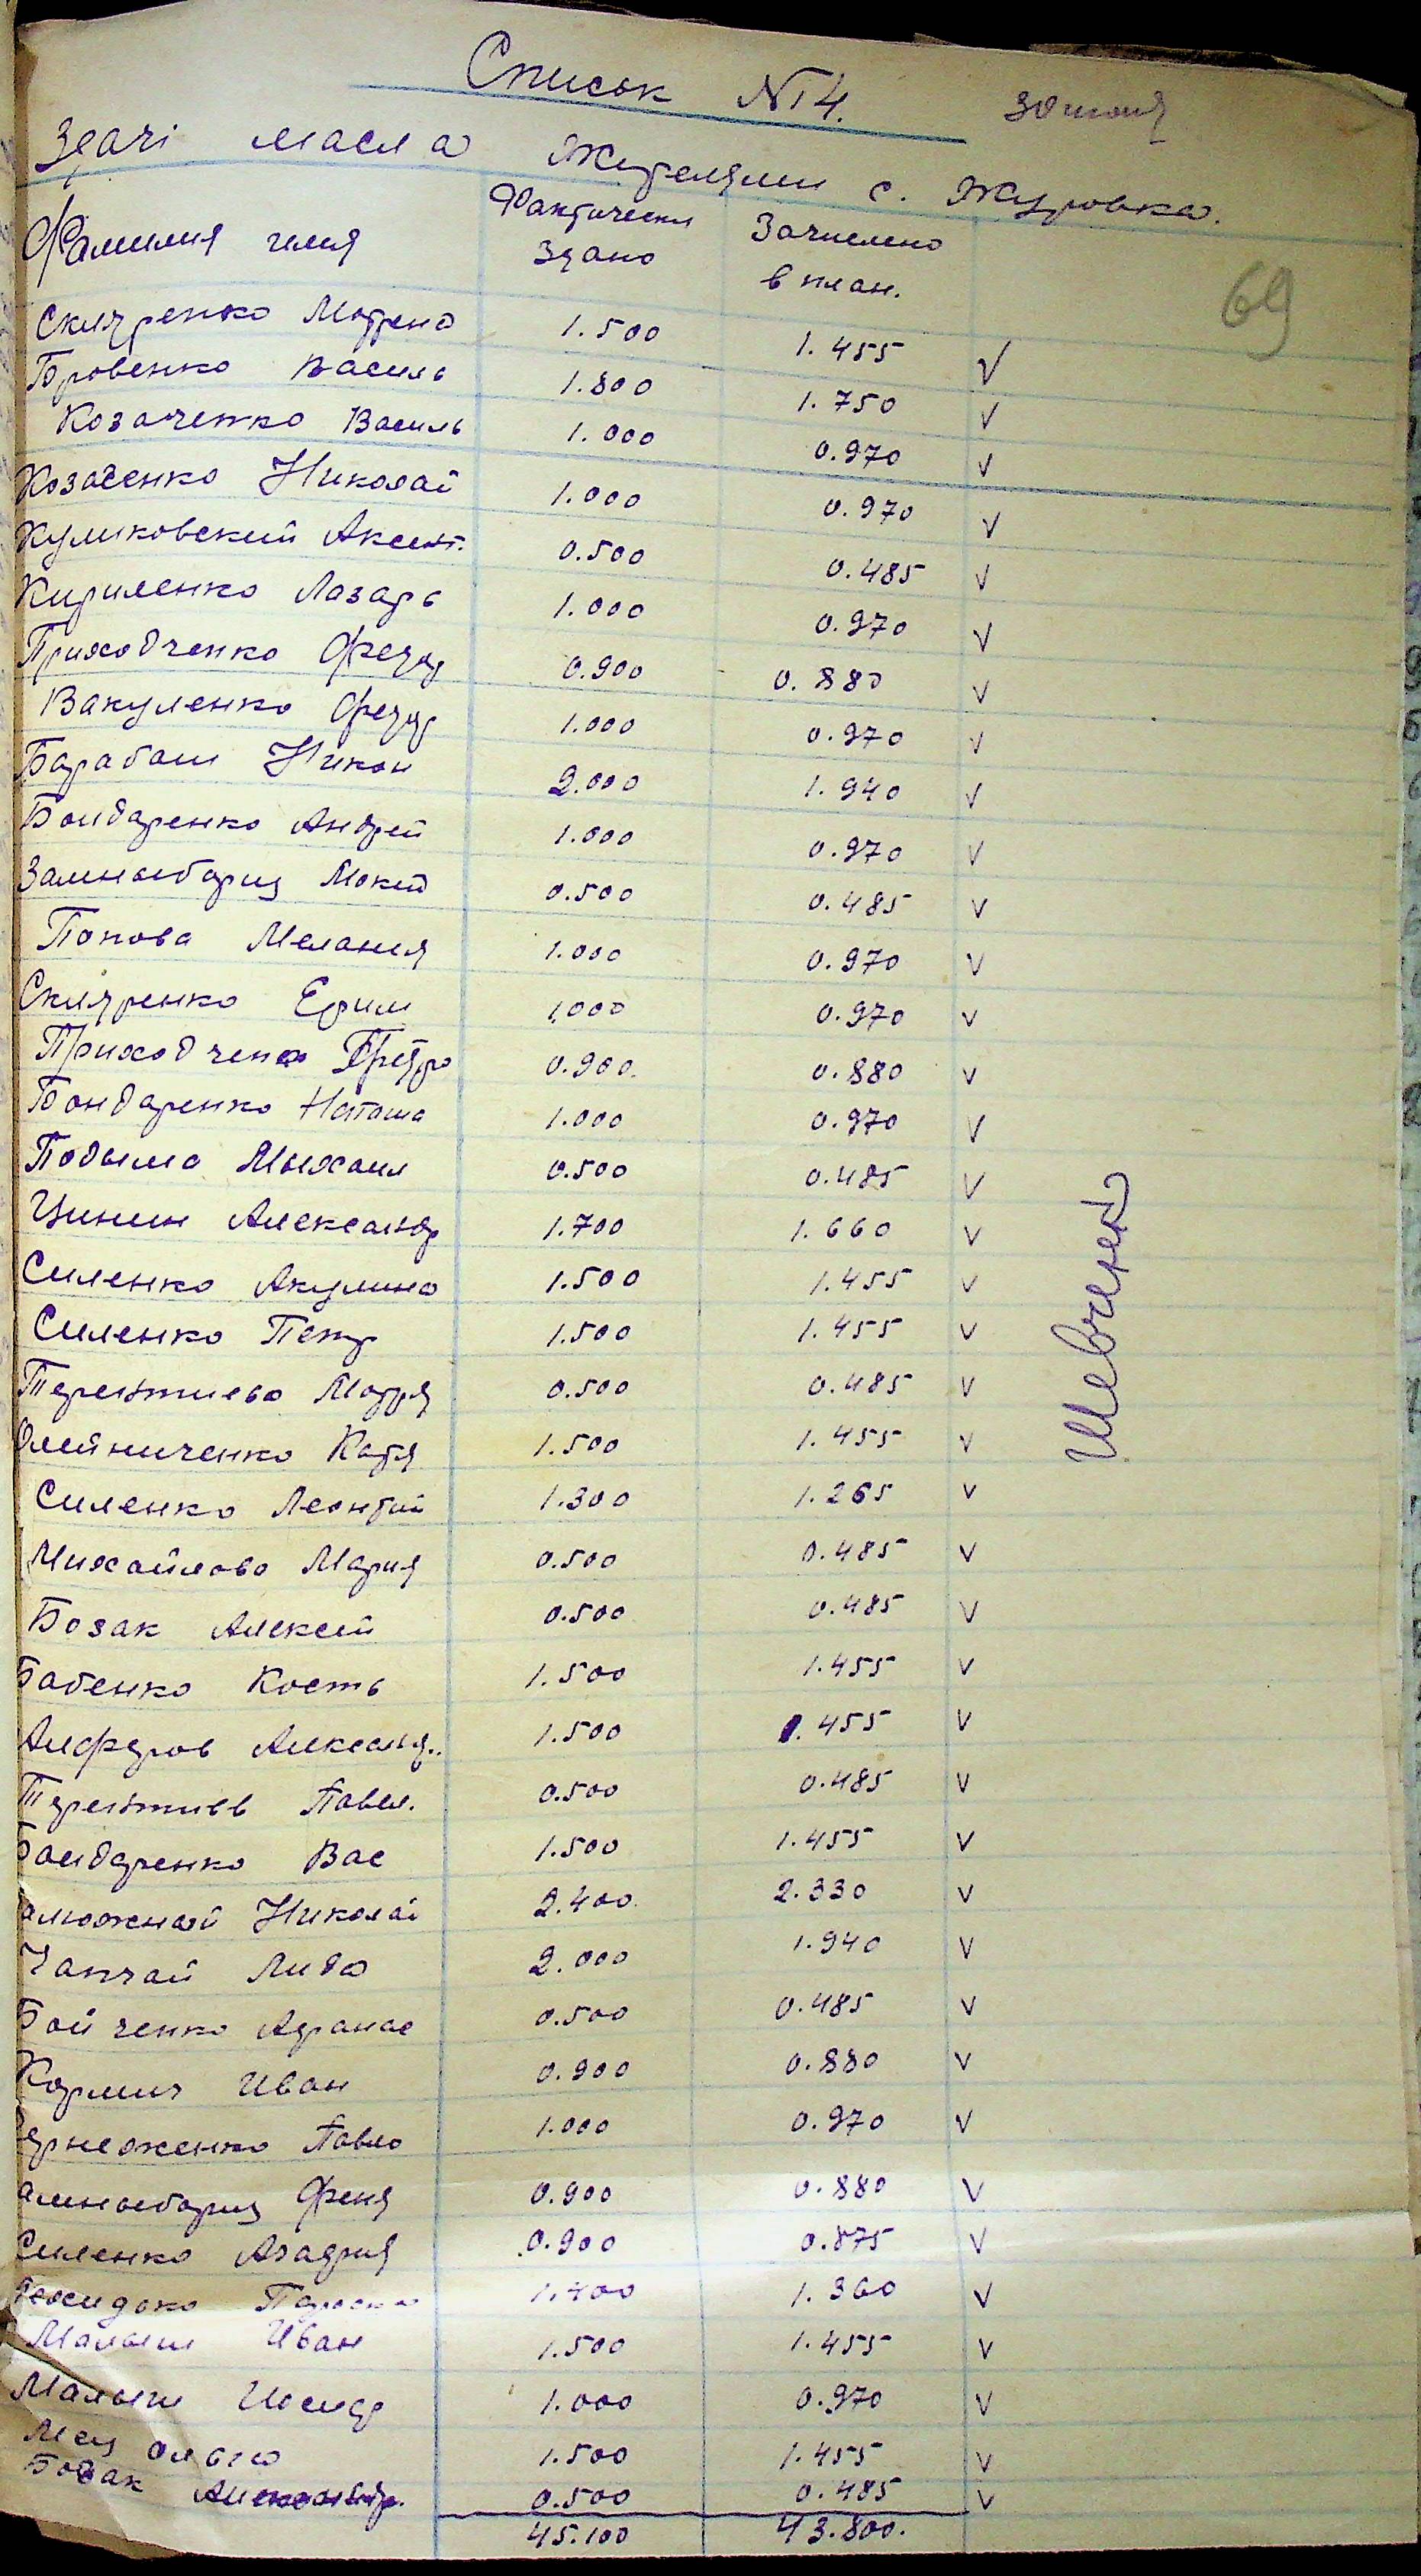 Список №4. 30 июня
Здачі масла жителями с. Журовка.
Фамилия имя Фактически здано Зачислено в план.
69
Скляренко Мотрена 1.500 1.455 V
Бровенко Василь 1.800 1.750 V
Козаченко Василь 1.000 0.970 V
Козаченко Николай 1.000 0.970 V
Куликовский Аксент. 0.500 0.485 V
Кириленко Лазарь 1.000 0.970 V
Приходченко Федор 0.900 0.880 V
Вакуленко Федор 1.000 0.970 V
Барабаш Никон 2.000 1.940 V
Бондаренко Андрей 1.000 0.970 V
Замныборщ Мокей 0.500 0.485 V
Попова Мелания 1.000 0.970 V
Скляренко Ефим 1.000 0.970 V
Приходченко 0.900. 0.880 V
Бондаренко Наташа 1.000 0.970 V
Подыма Мыхаил 0.500 0.485 V
Цинин Александр 1.700 1.660 V
Силенко Акулина 1.500 1.455 V
Силенко Петр 1.500 1.455 V
Терентиева Мотря 0.500 0.485 V
Олейниченко Катя 1.500 1.455 V
Силенко Леонтий 1.300 1.265 V
Михайлова Мария 0.500 0.485 V
Бозак Алексей 0.500 0.485 V
Бабенко Кость 1.500 1.455 V
Алферов Александ.. 1.500 1.455 V
Терентиев Павел. 0.500 0.485 V
Бондаренко Вас 1.500 1.455 V
Николай 2.400. 2.330 V
Чапчай Лида 2.000 1.940 V
Бойченко Афанас 0.500 0.485 V
Кармич Иван 0.900 0.880 V
Павло 1.000 0.970 V
амныборщ Феня 0.900 0.880 V
Силенко Агафия 0.900 0.875 V
1.400 1.360 V
Малыш Иван 1.500 1.455 V
Малыш Исидор 1.000 0.970 V
Мец Ольга 1.500 1.455 V
Бозак Александр. 0.500 0.485 V
45.100 43.800.
Шевченко